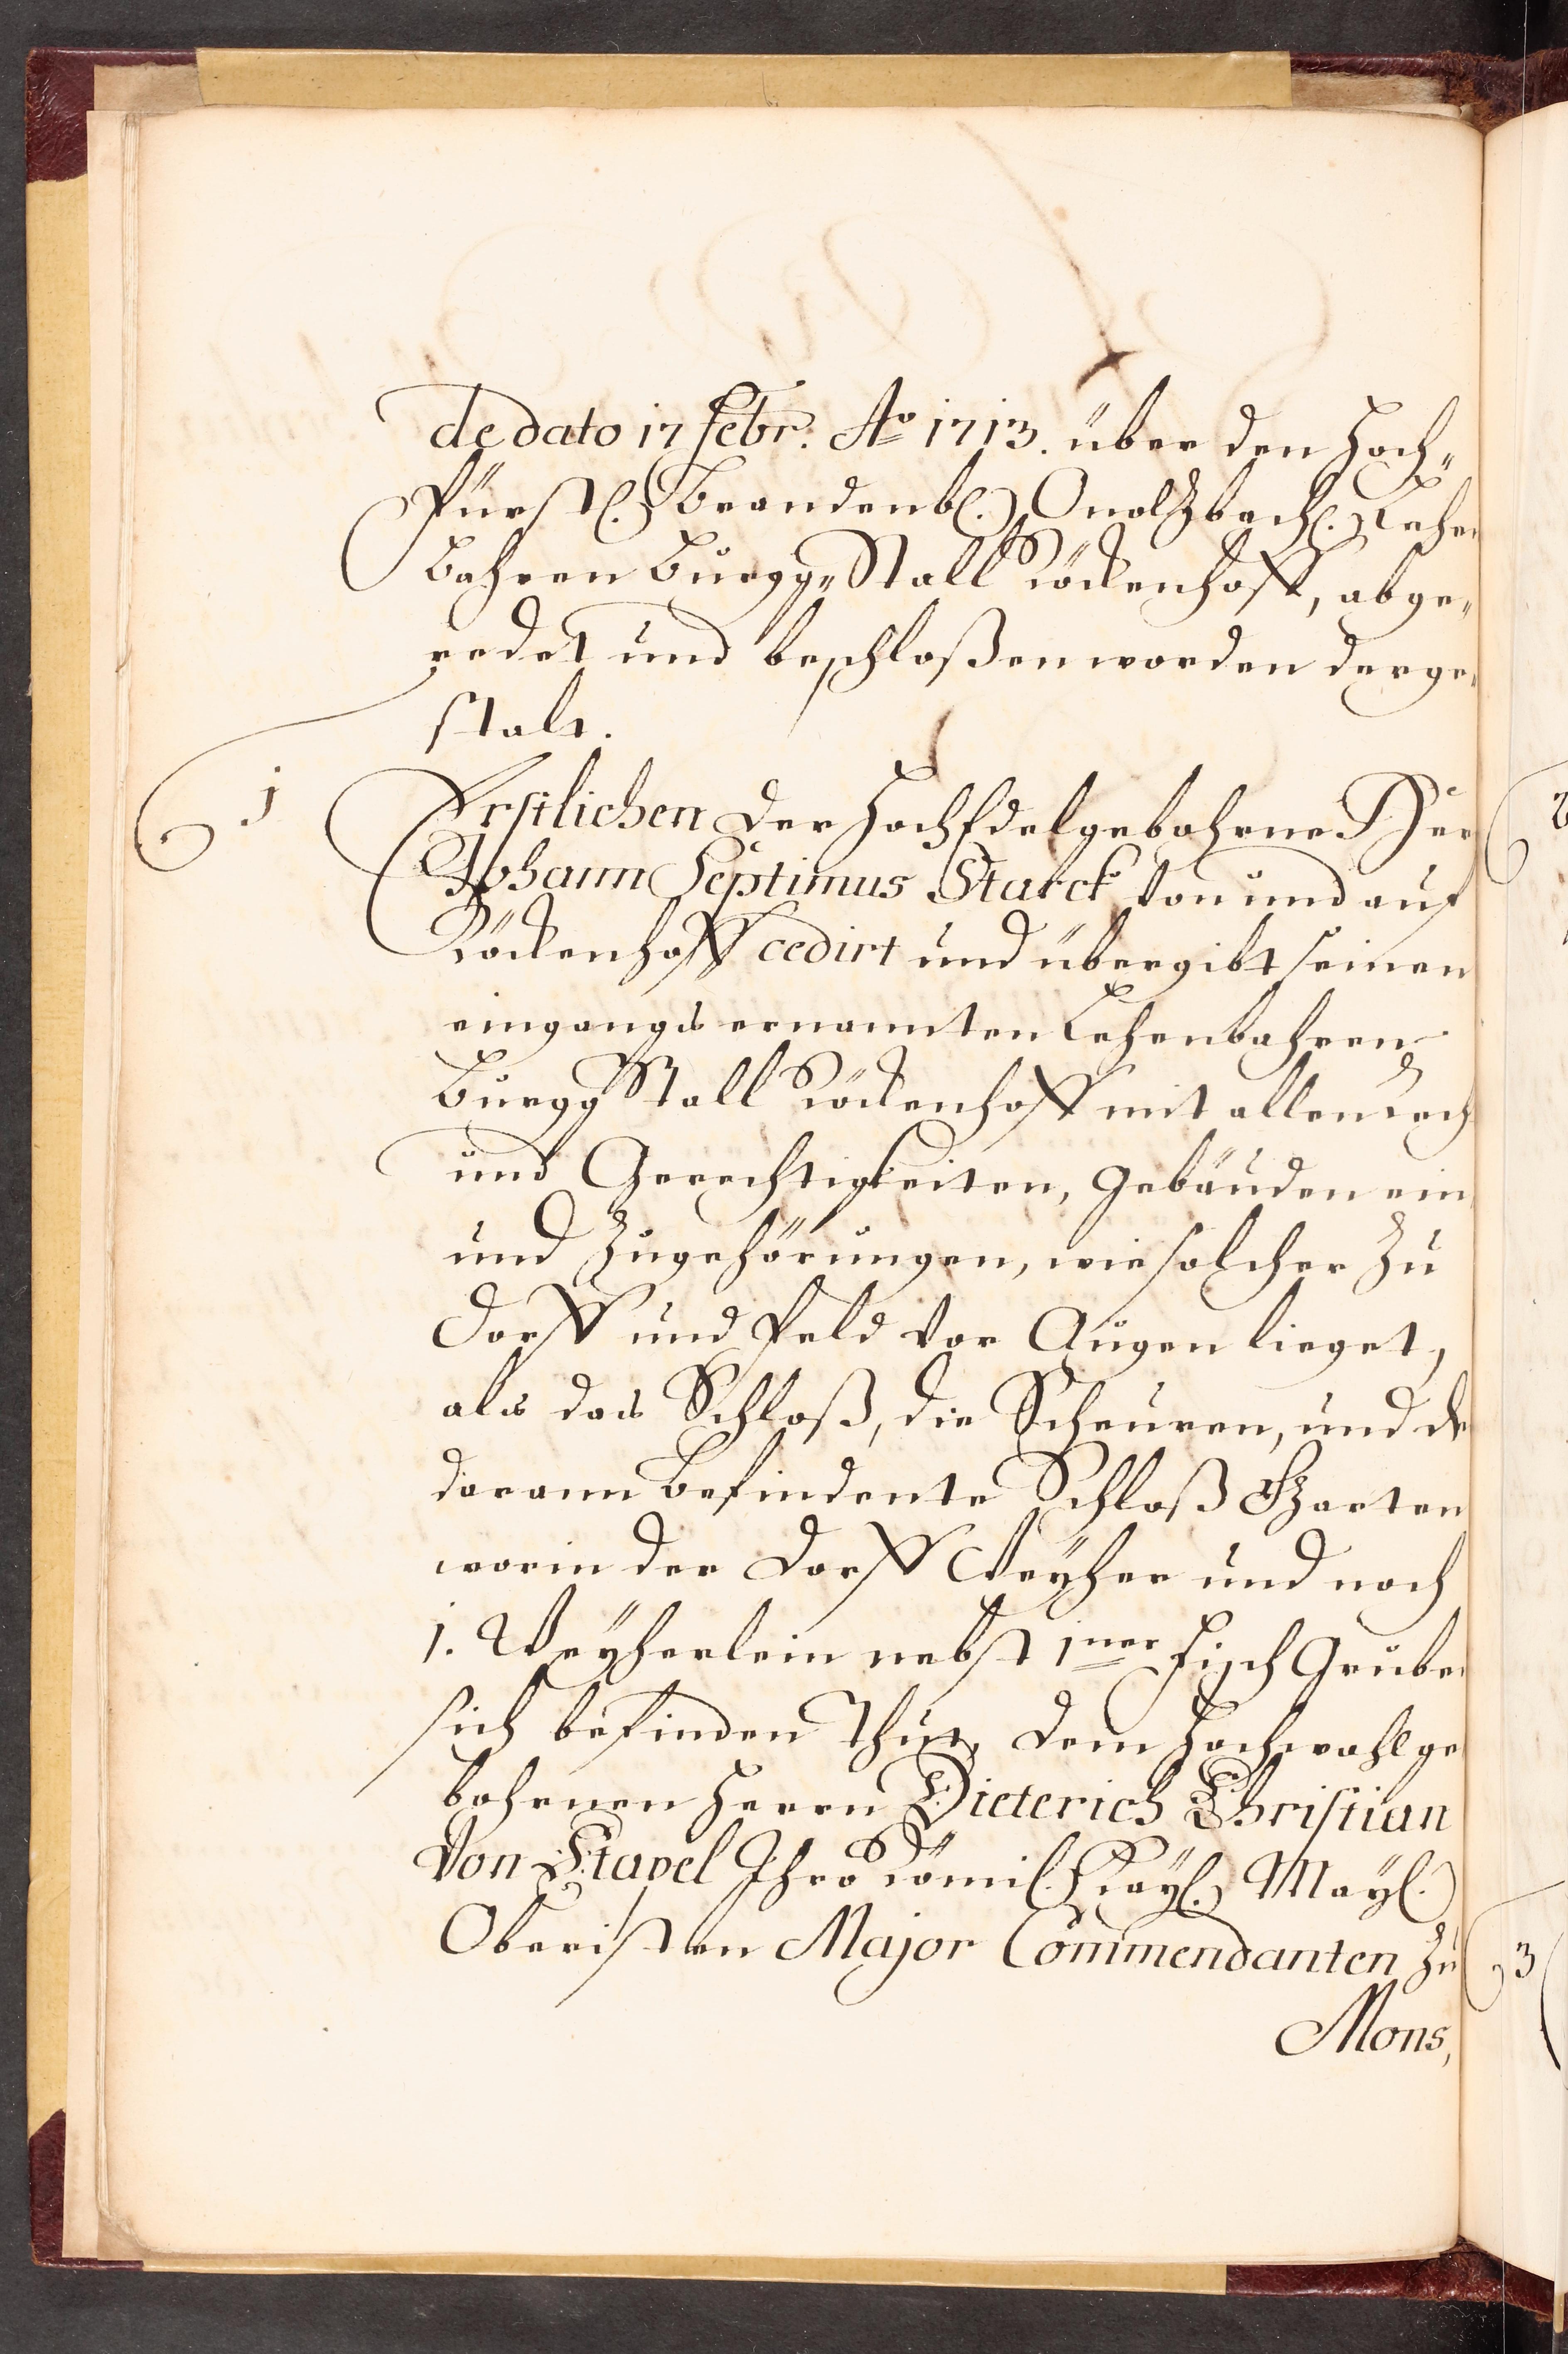 de dato 17 febr. Ao 1713. über den Hoch„
Fürstl. Brandenb. Onolzbach. Lehen
bahren Burgg„Stall Röckenhoff, abge„
redet und beschloßen worden derge„
stalt.
1 Erstlichen Der HochEdelgebohrne Herr
Johann Septimus Starck von und auf
Röckenhoff cedirt und übergibt seinen
eingangs ernannten Lehenbahren
BurggStall Röckenhoff mit allen Rech
und Gerechtigkeiten, Gebäuden ein
und Zugehörungen, wie solcher Zu
Dorff und Feld vor Augen lieget,
als das Schloß, die Scheuren, und de
darann befindente Schloß Garten
worin der Dorff Weyher und noch
1. Weyherlein nebst 1ner Fisch Gruben
sich befinden Thut, Dem Hochwohlge
bohrnen Herrn Dieterich Christian
Von Stapel Ihro Römis. Kayl. Mayl.
Oberisten Major Commendanten Zu
3
Mons,